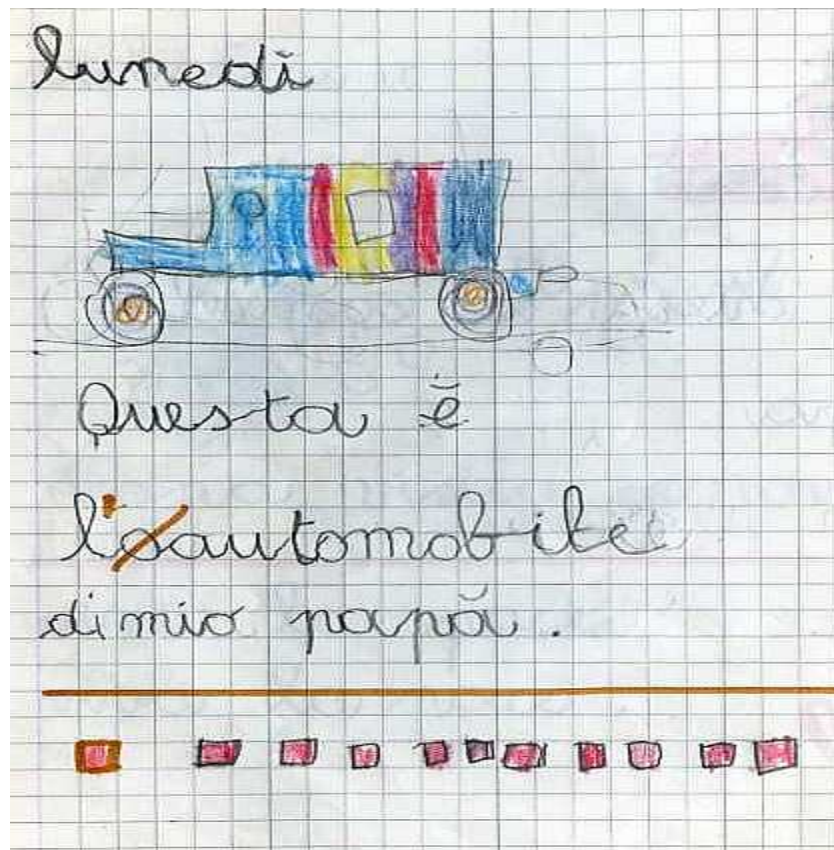 lunedì
Questa è
l'automobile
di mio papà.